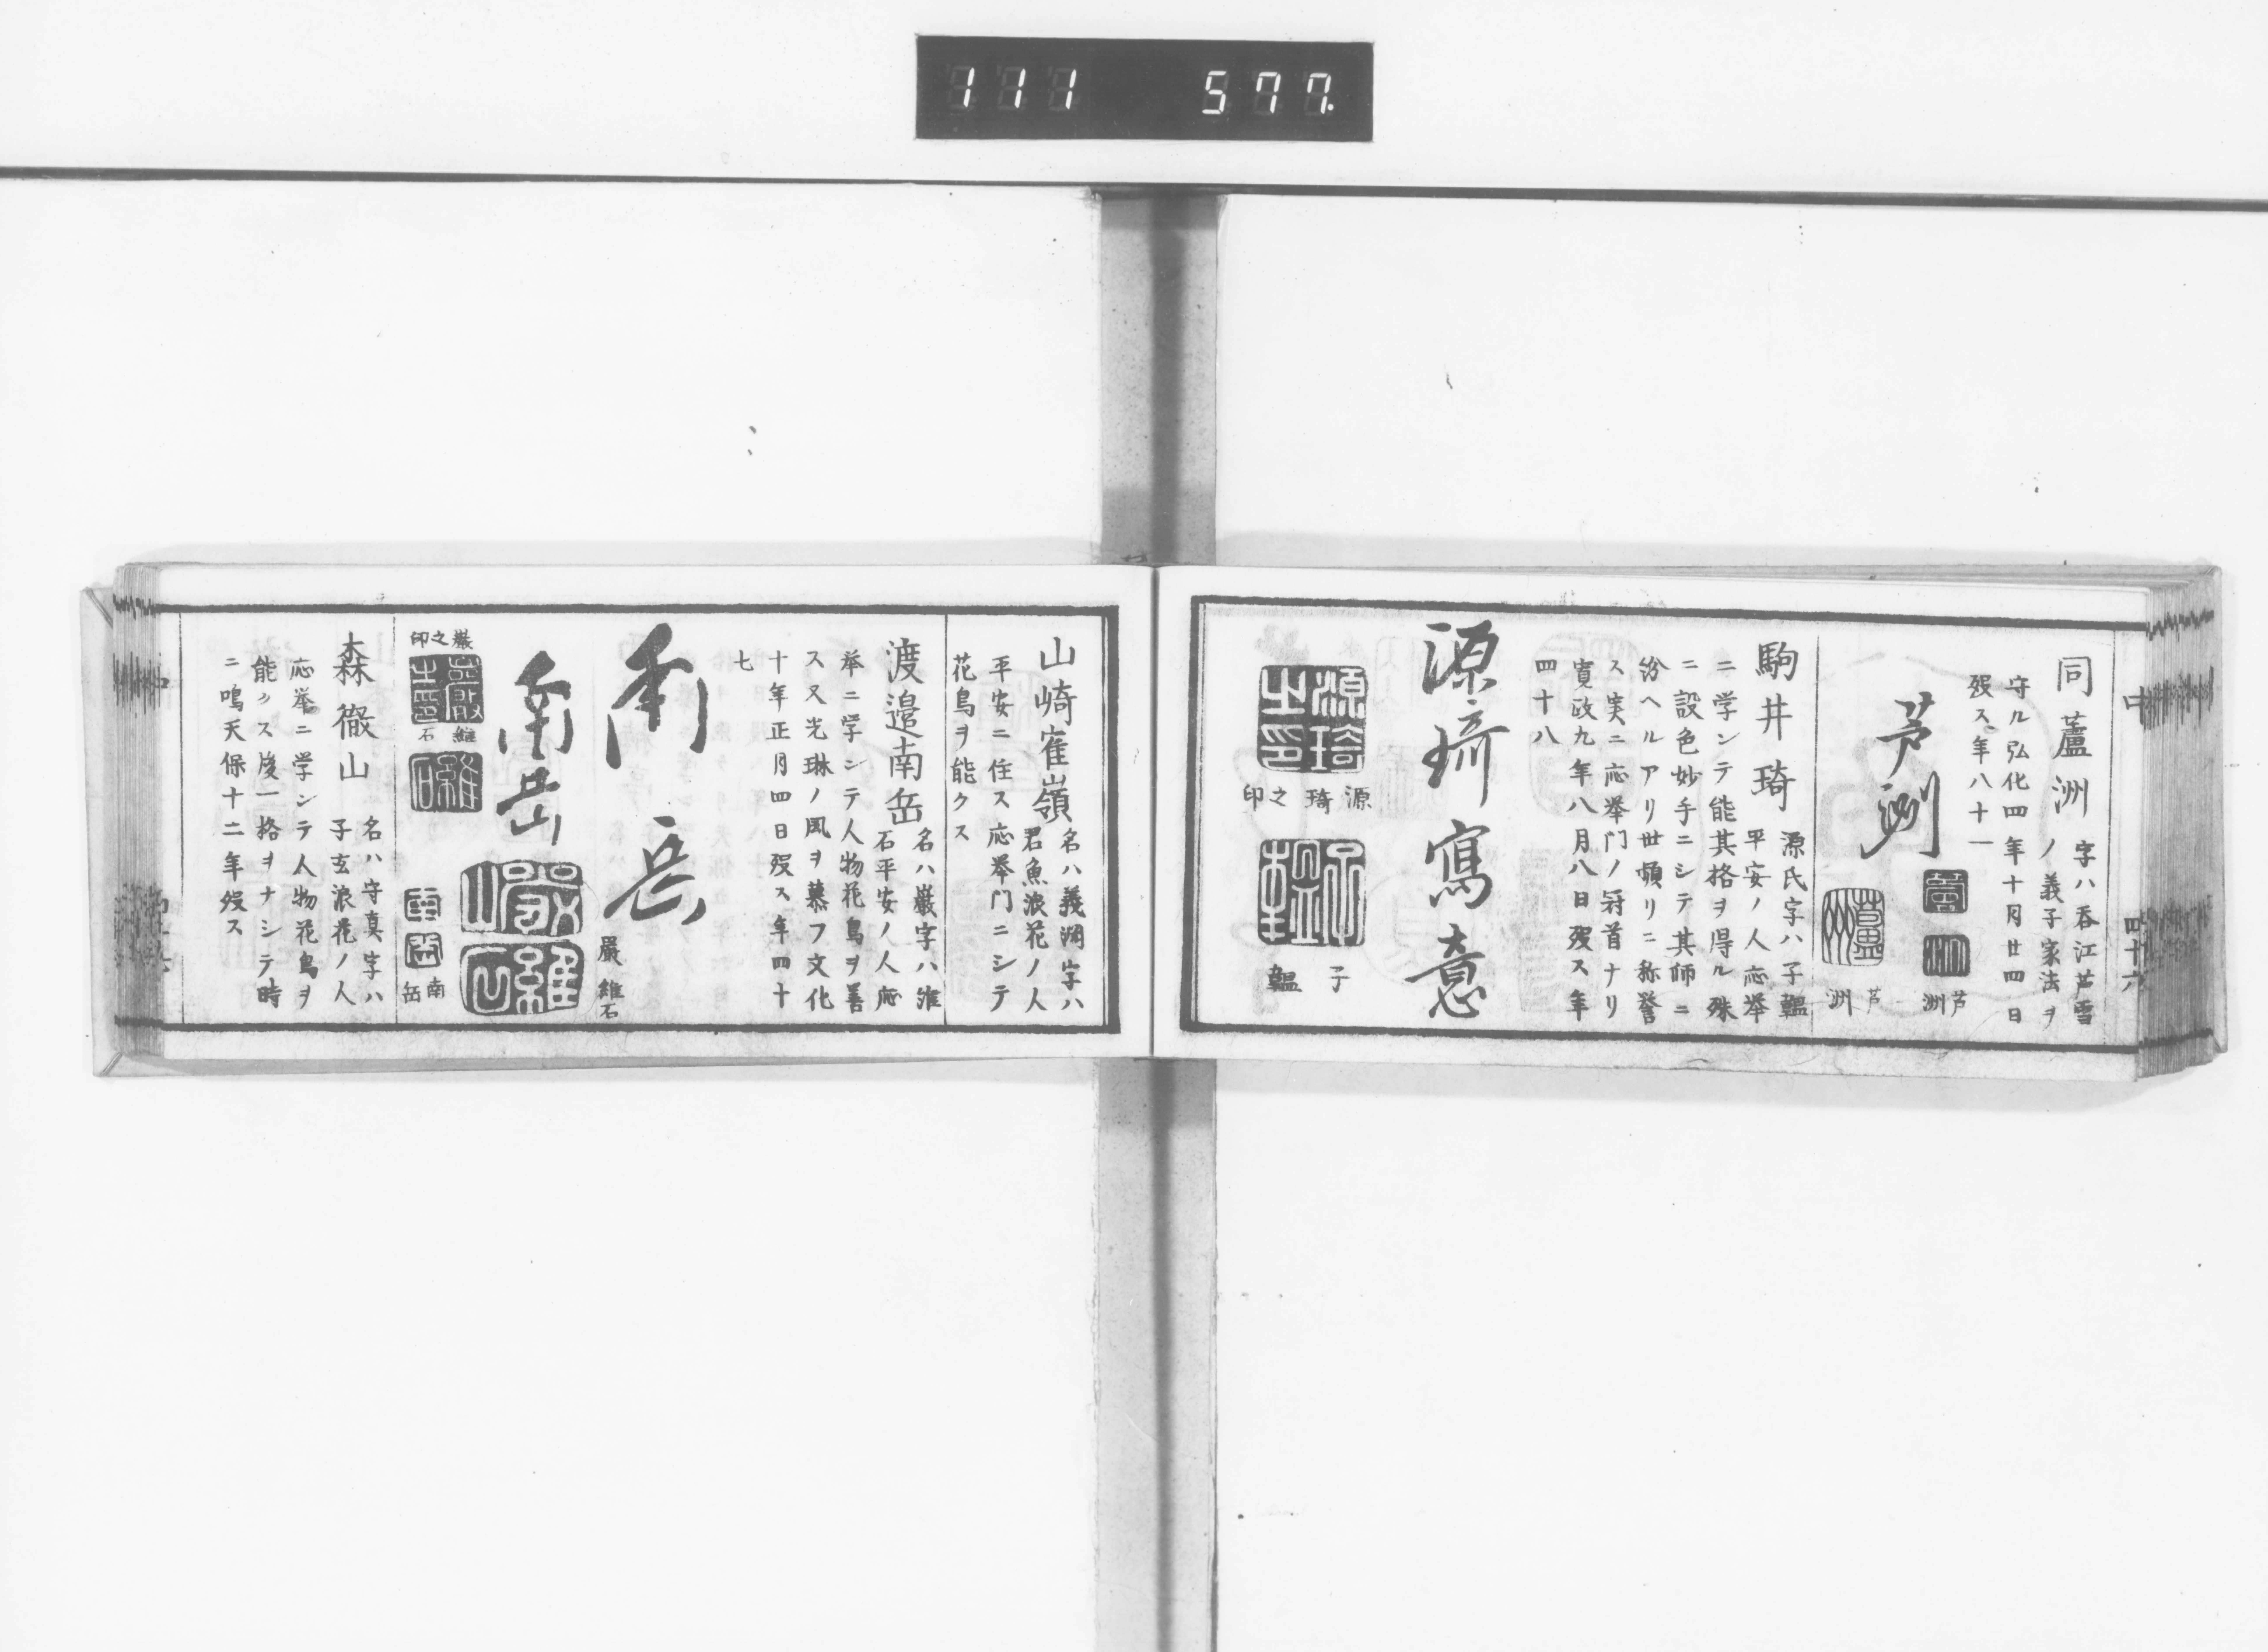 111 577.
中
四十六
同蘆洲 字ハ呑江芦雪
ノ義子家法ヲ
守ル弘化四年十月廿四日
歿ス年八十一
芦洲
芦洲
芦洲
駒井琦 源氏字ハ子韞
平安ノ人応挙
ニ学ンテ能其格ヲ得ル殊
ニ設色妙手ニシテ其師ニ
紛ヘルアリ世頻リニ称誉
ス実ニ応挙門ノ冠首ナリ
寛政九年八月八日歿ス年
四十八
源琦寫意
源琦之印
子韞
山崎寉嶺 名ハ義淵字ハ
君魚浪花ノ人
平安ニ住ス応挙門ニシテ
花鳥ヲ能クス
渡邉南岳 名ハ巌字ハ維
石平安ノ人応
挙ニ学ンテ人物花鳥ヲ善
ス又光琳ノ風ヲ慕フ文化
十年正月四日歿ス年四十
七
南岳
巌維石
南岳
巌之印
維石
南岳
森徹山 名ハ守真字ハ
子玄浪花ノ人
応挙ニ学ンテ人物花鳥ヲ
能クス後一格ヲナシテ時
ニ鳴天保十二年歿ス